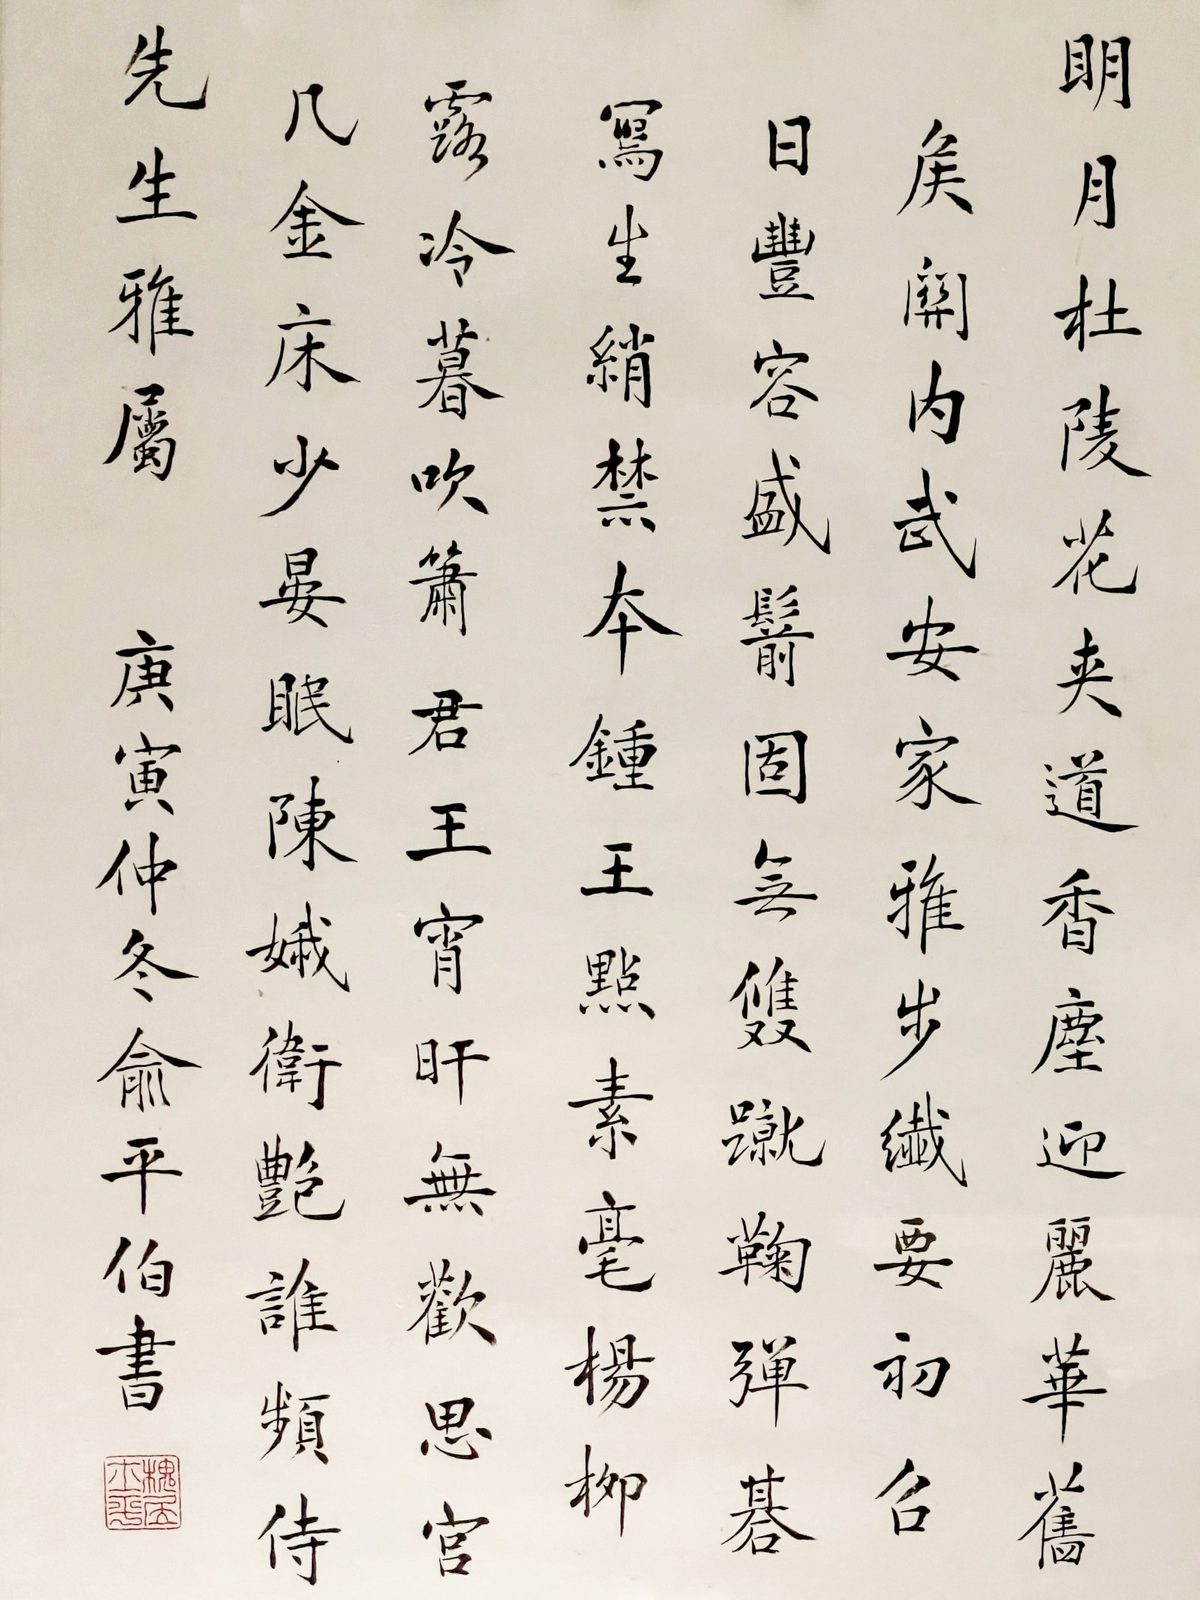 明月杜陵花夾道香塵迎麗華舊
矦關内武安家雅步纖要初召
日豐容盛鬋固無雙蹴鞠彈碁
寫生綃禁本鍾王點素毫楊柳
露冷暮吹簫君王宵旰無歡思宮
几金床少晏眠陳娥衛艶誰頻侍
先生雅屬
庚寅仲冬俞平伯書